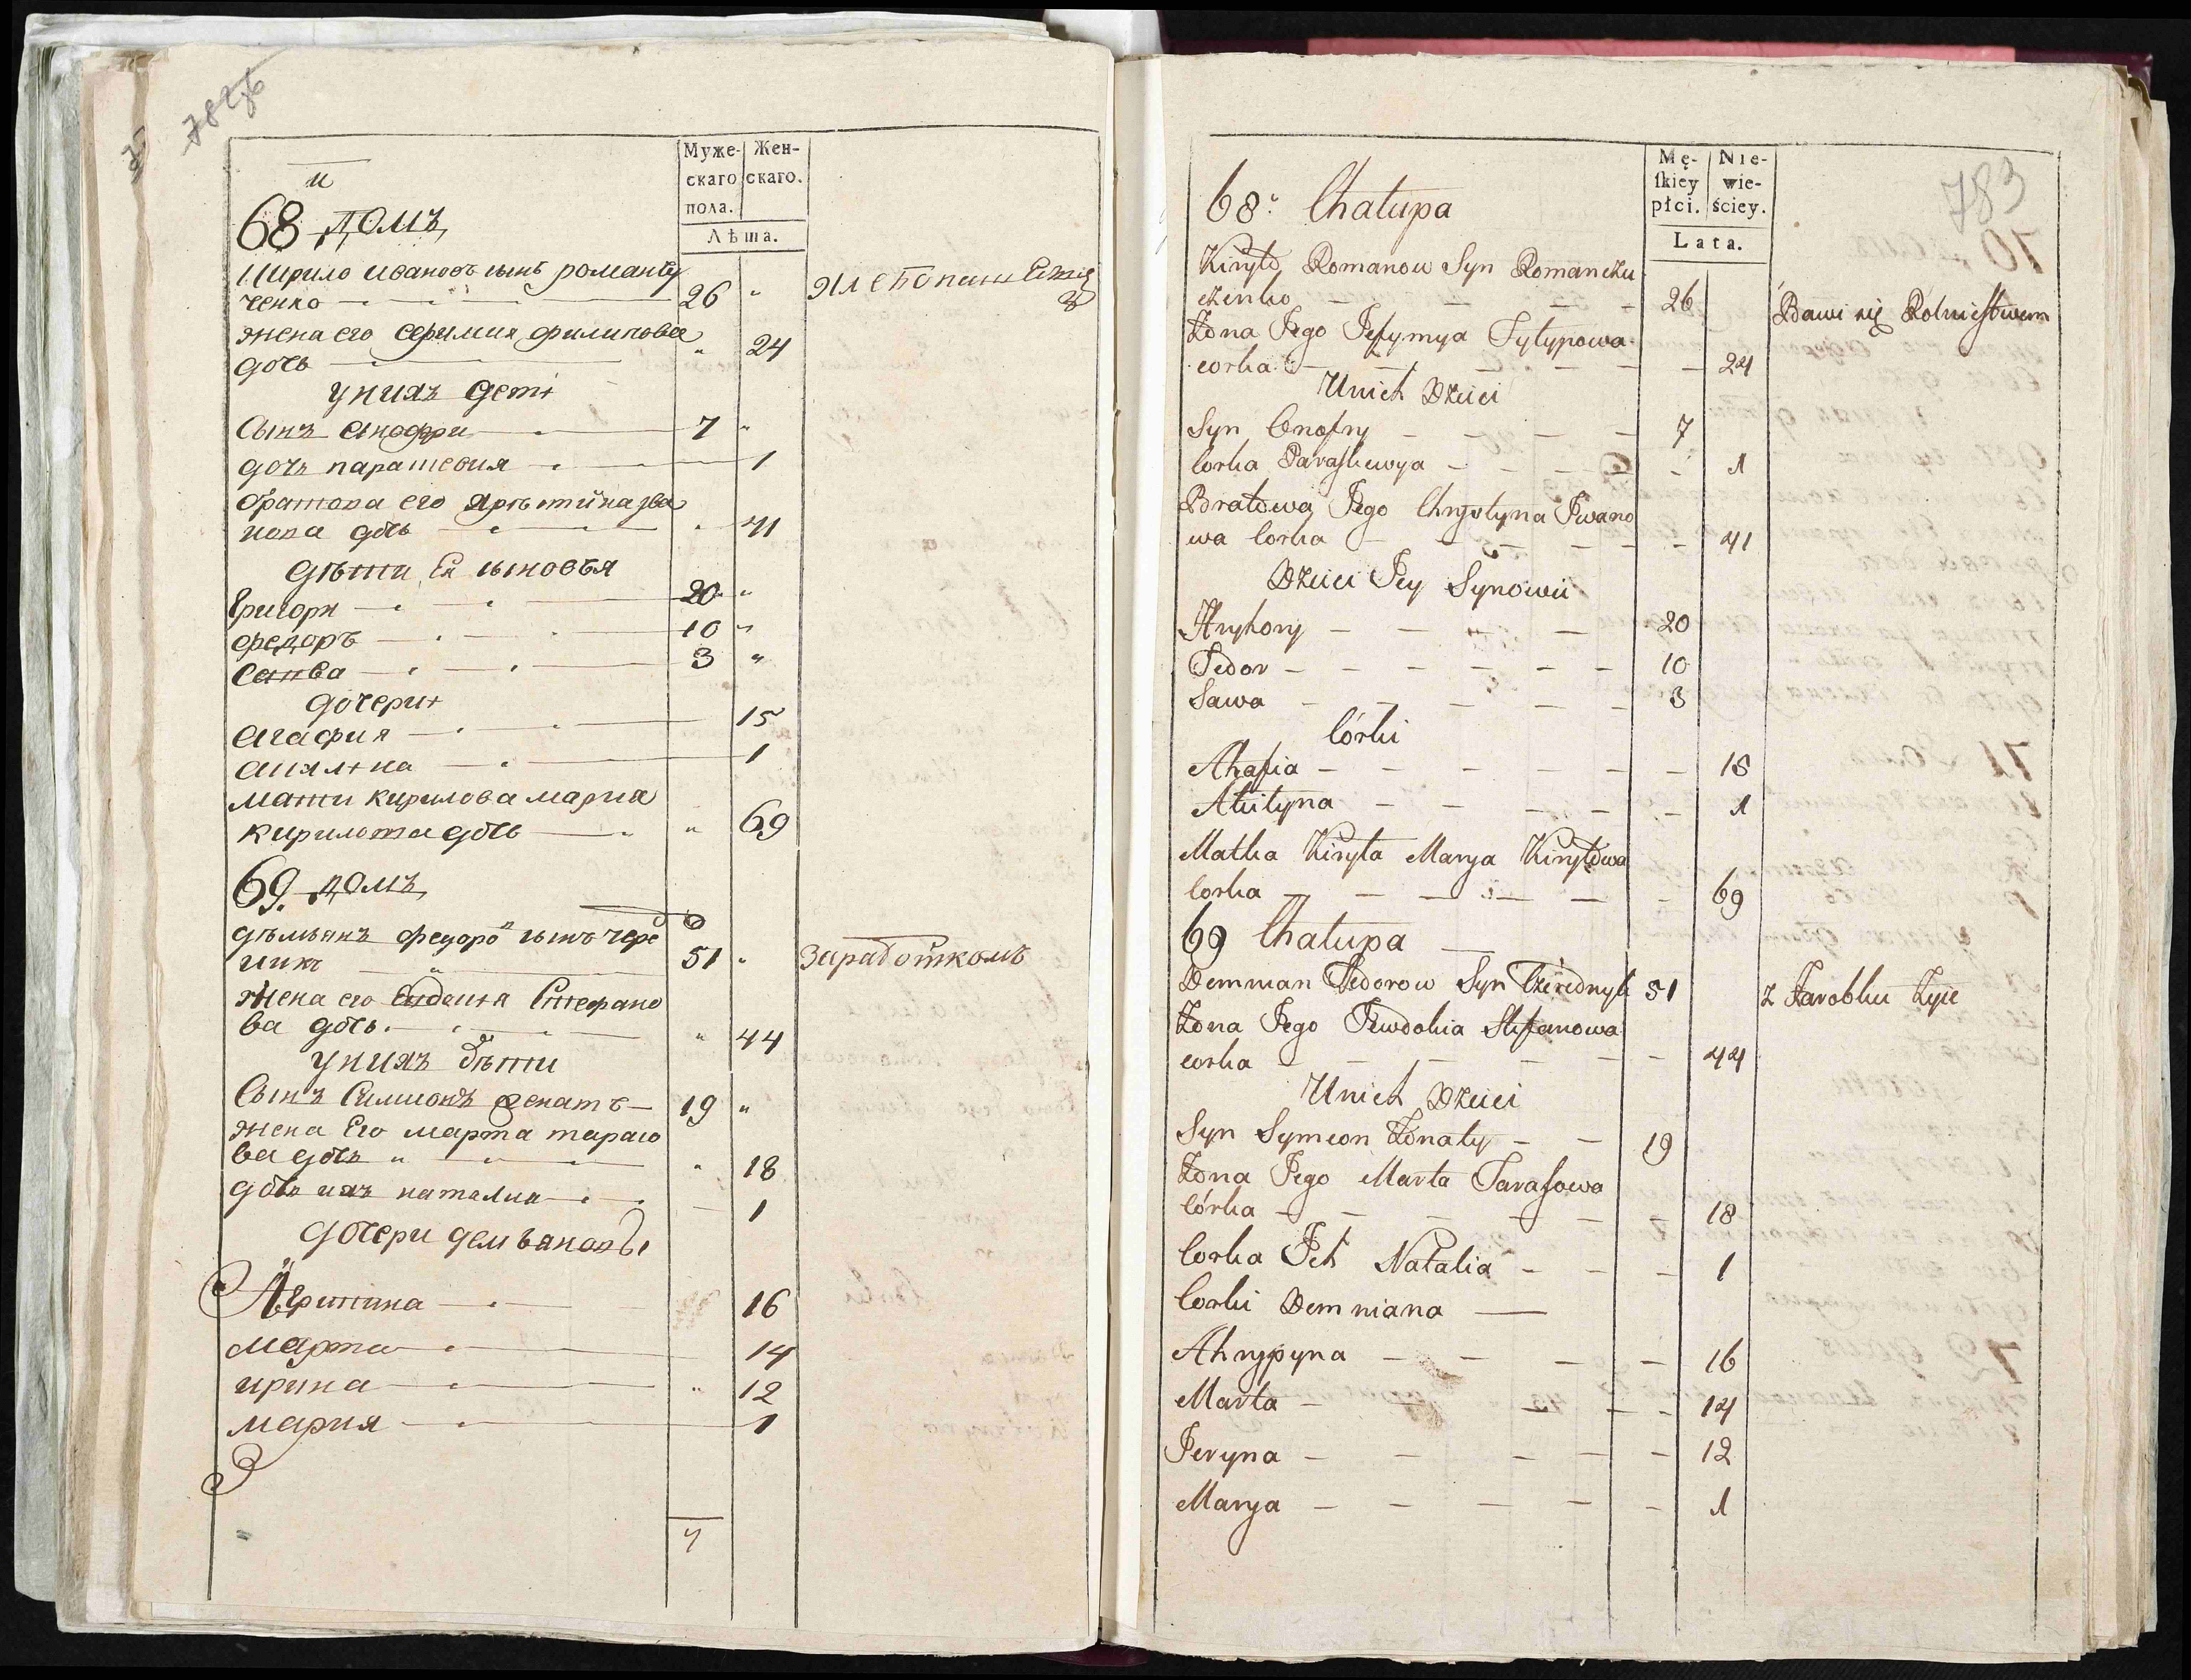 782об
Муже-
скаго
пола.
Жен-
скаго.
Лѣта.
68 домъ
Кирило Ивановъ сынъ романчу
ченко 26 "
жена его Ефимия филипова
дочь " 24
у нихъ дети
Сынъ анофри 7 "
дочъ парашевия 1
братова его
нова дочь 41
дѣти Ея сыновъя
Григори 20 "
федоръ 10 "
Савва 3 "
дочери
агафия 15
акилина 1
мати кирилова мария
кирилова дочь " 69
69. домъ
дѣмъянъ федоро в сынъ чере
никъ 51 " заработкомъ
жена его Евдокия Стефано
ва дочь " 44
у нихъ дѣти
Сынъ Симионъ женатъ 19 "
жена Его марта тарасо
ва дочъ " 18
дочь ихъ наталия 1
дочери демъяновы
Агрипина 16
марта 14
ирина " 12
мария 1
7
783
Mę-
skiey
płci.
Nie-
wie-
ściey.
Lata.
68. Chałupa
Kiryło Romanow Syn Romanczu
czenko 26 Bawi się Rolnictwem
Żona Jego Jefymya Fylypowa
corka 24
U nich Dzieci
Syn Onofry 7
Corka Paraskewya 1
Bratowa Jego Chrystyna Iwano
wa Corka 41
Dzieci Jey Synowii
Hryhory 20
Fedor 10
Sawa 3
Córki
Ahafia 15
Akilyna 1
Matka Kiryła Marya Kiryłowa
Corka 69
69 Chałupa
Demnian Fedorow Syn Czerednyk 51 z Zarobku Żyie
Żona Jego Jewdokia Stefanowa
corka 44
U nich Dzieci
Syn Symeon Żonaty 19
Żona Jego Marta Tarasowa
Córka 18
Corka Ich Natalia 1
Corki Demniana
Ahrypyna 16
Marta 14
Jeryna 12
Marya 1